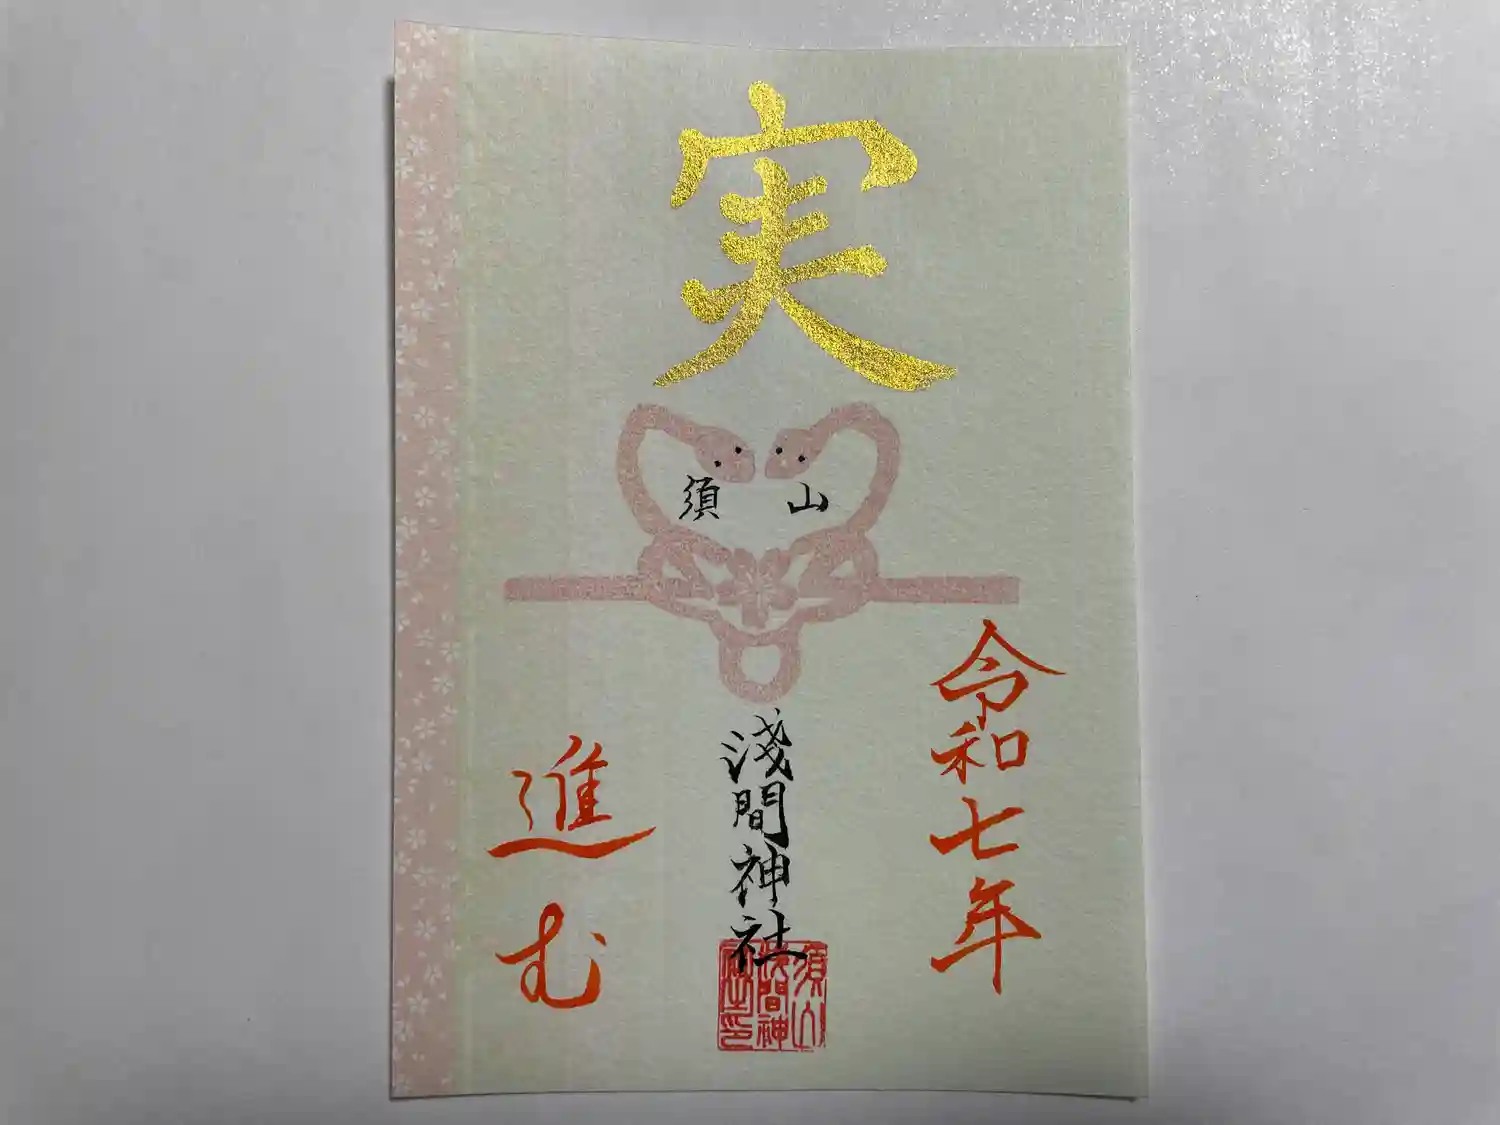 実
須山
淺間神社
令和七年
進む
須山
浅間神